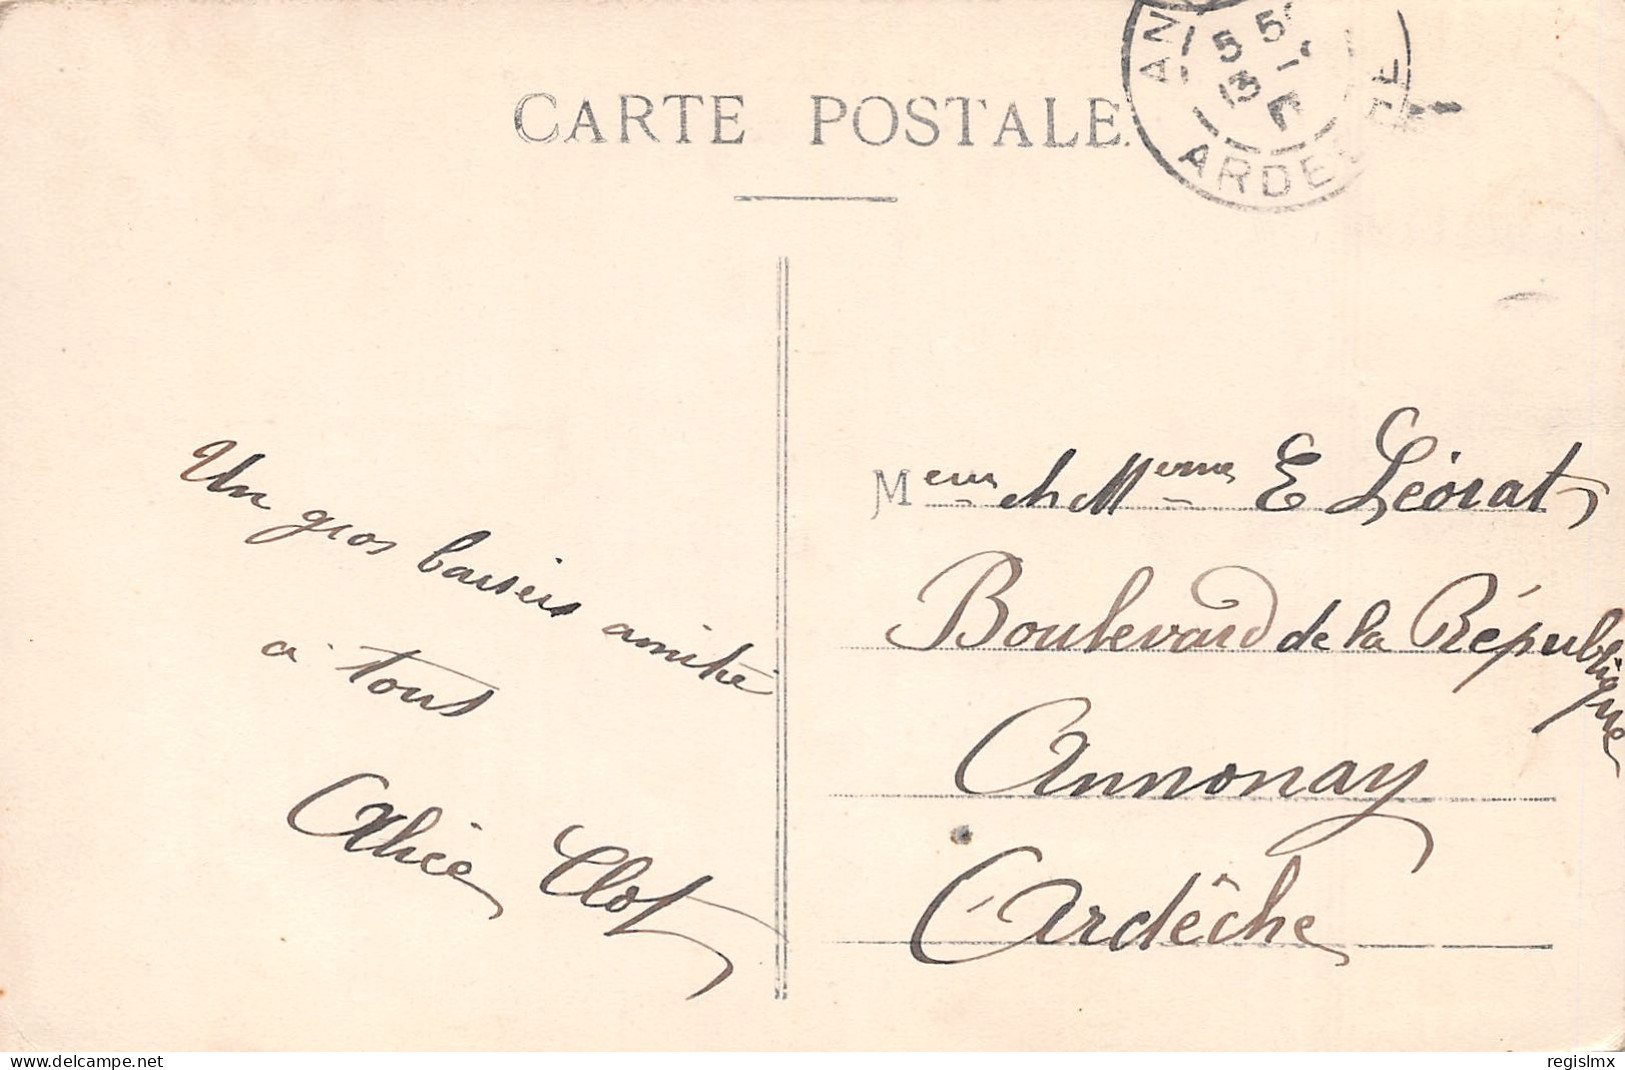 CARTE POSTALE
ARDECHE
Un gros baisers amitié
a tous
Alice Clot
Meur et Meme E Léorat
Boulevard de la République
Annonay
Ardèche
delcampe.net
regislmx